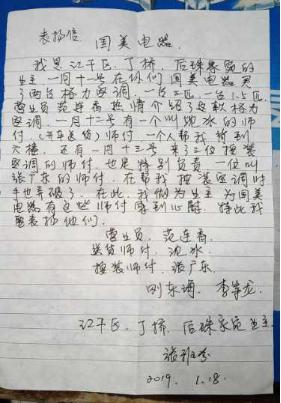 表扬信
国美电器.
我是江干区.丁桥.后珠家苑的
业主一月十一号在你们国美电器买
了两台格力空调.一台2匹.一台1.5匹
营业员范连香热情介绍了这款格力
空调.一月十二号有一个叫沈水的师
付.(开车送货)师付一个人帮我 到
六楼.还有一月十三号来了二位按装
空调的师付.也是特别负责一位叫
张广东的师付.在帮我按装空调时
手也弄破了.在此.我做为业主为国美
电器有这些师付感到心 .特此我
要表扬他们.
营业员.范连香.
送货师付.沈水.
按装师付.张广东.
刚东调. 李 龙.
江干区.丁桥.后珠家苑业主.
张
2019. 1.18.